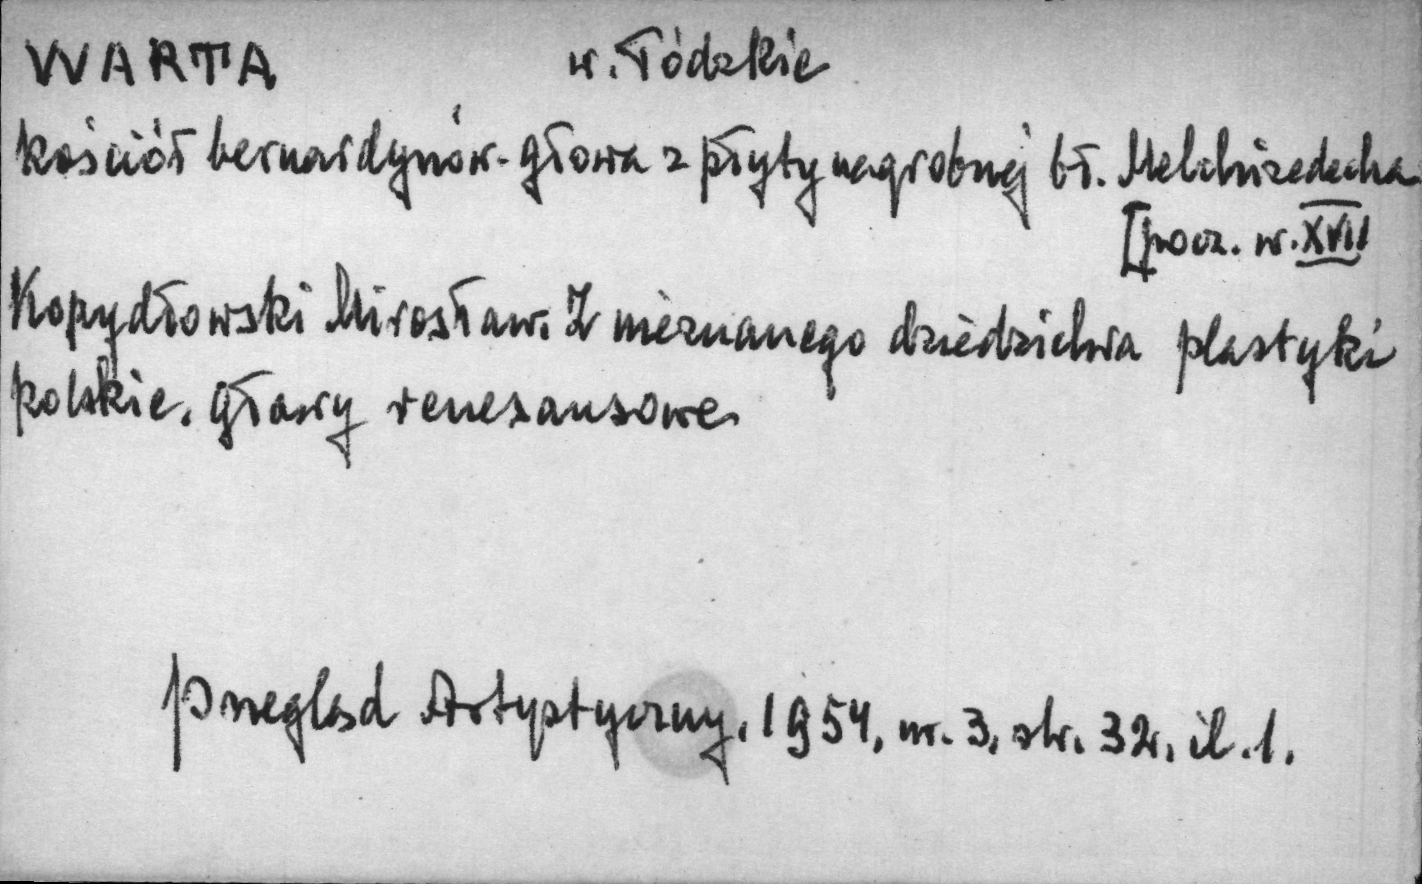 WARTA w. Łódzkie
kościół bernardynów - głowa z płyty nagrobnej bł. Melchizedecha
[pocz. w. XVII
Kopydłowski Mirosław. Z nieznanego dziedzictwa plastyki
polskie. głowy renesansowe.
Przegląd Artystyczny, 1954, nr. 3, str. 32, il. 1.